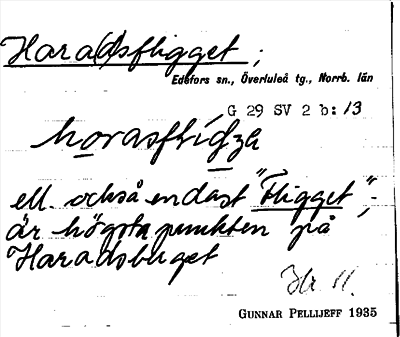 Hara(d)sfligget ;
Edefors sn., Överluleå tg., Norrb. län
G 29 SV 2 b: 13
ell. också endast "Fligget",
är högsta punkten på
Haradsbuget
GUNNAR PELLIJEFF 1935